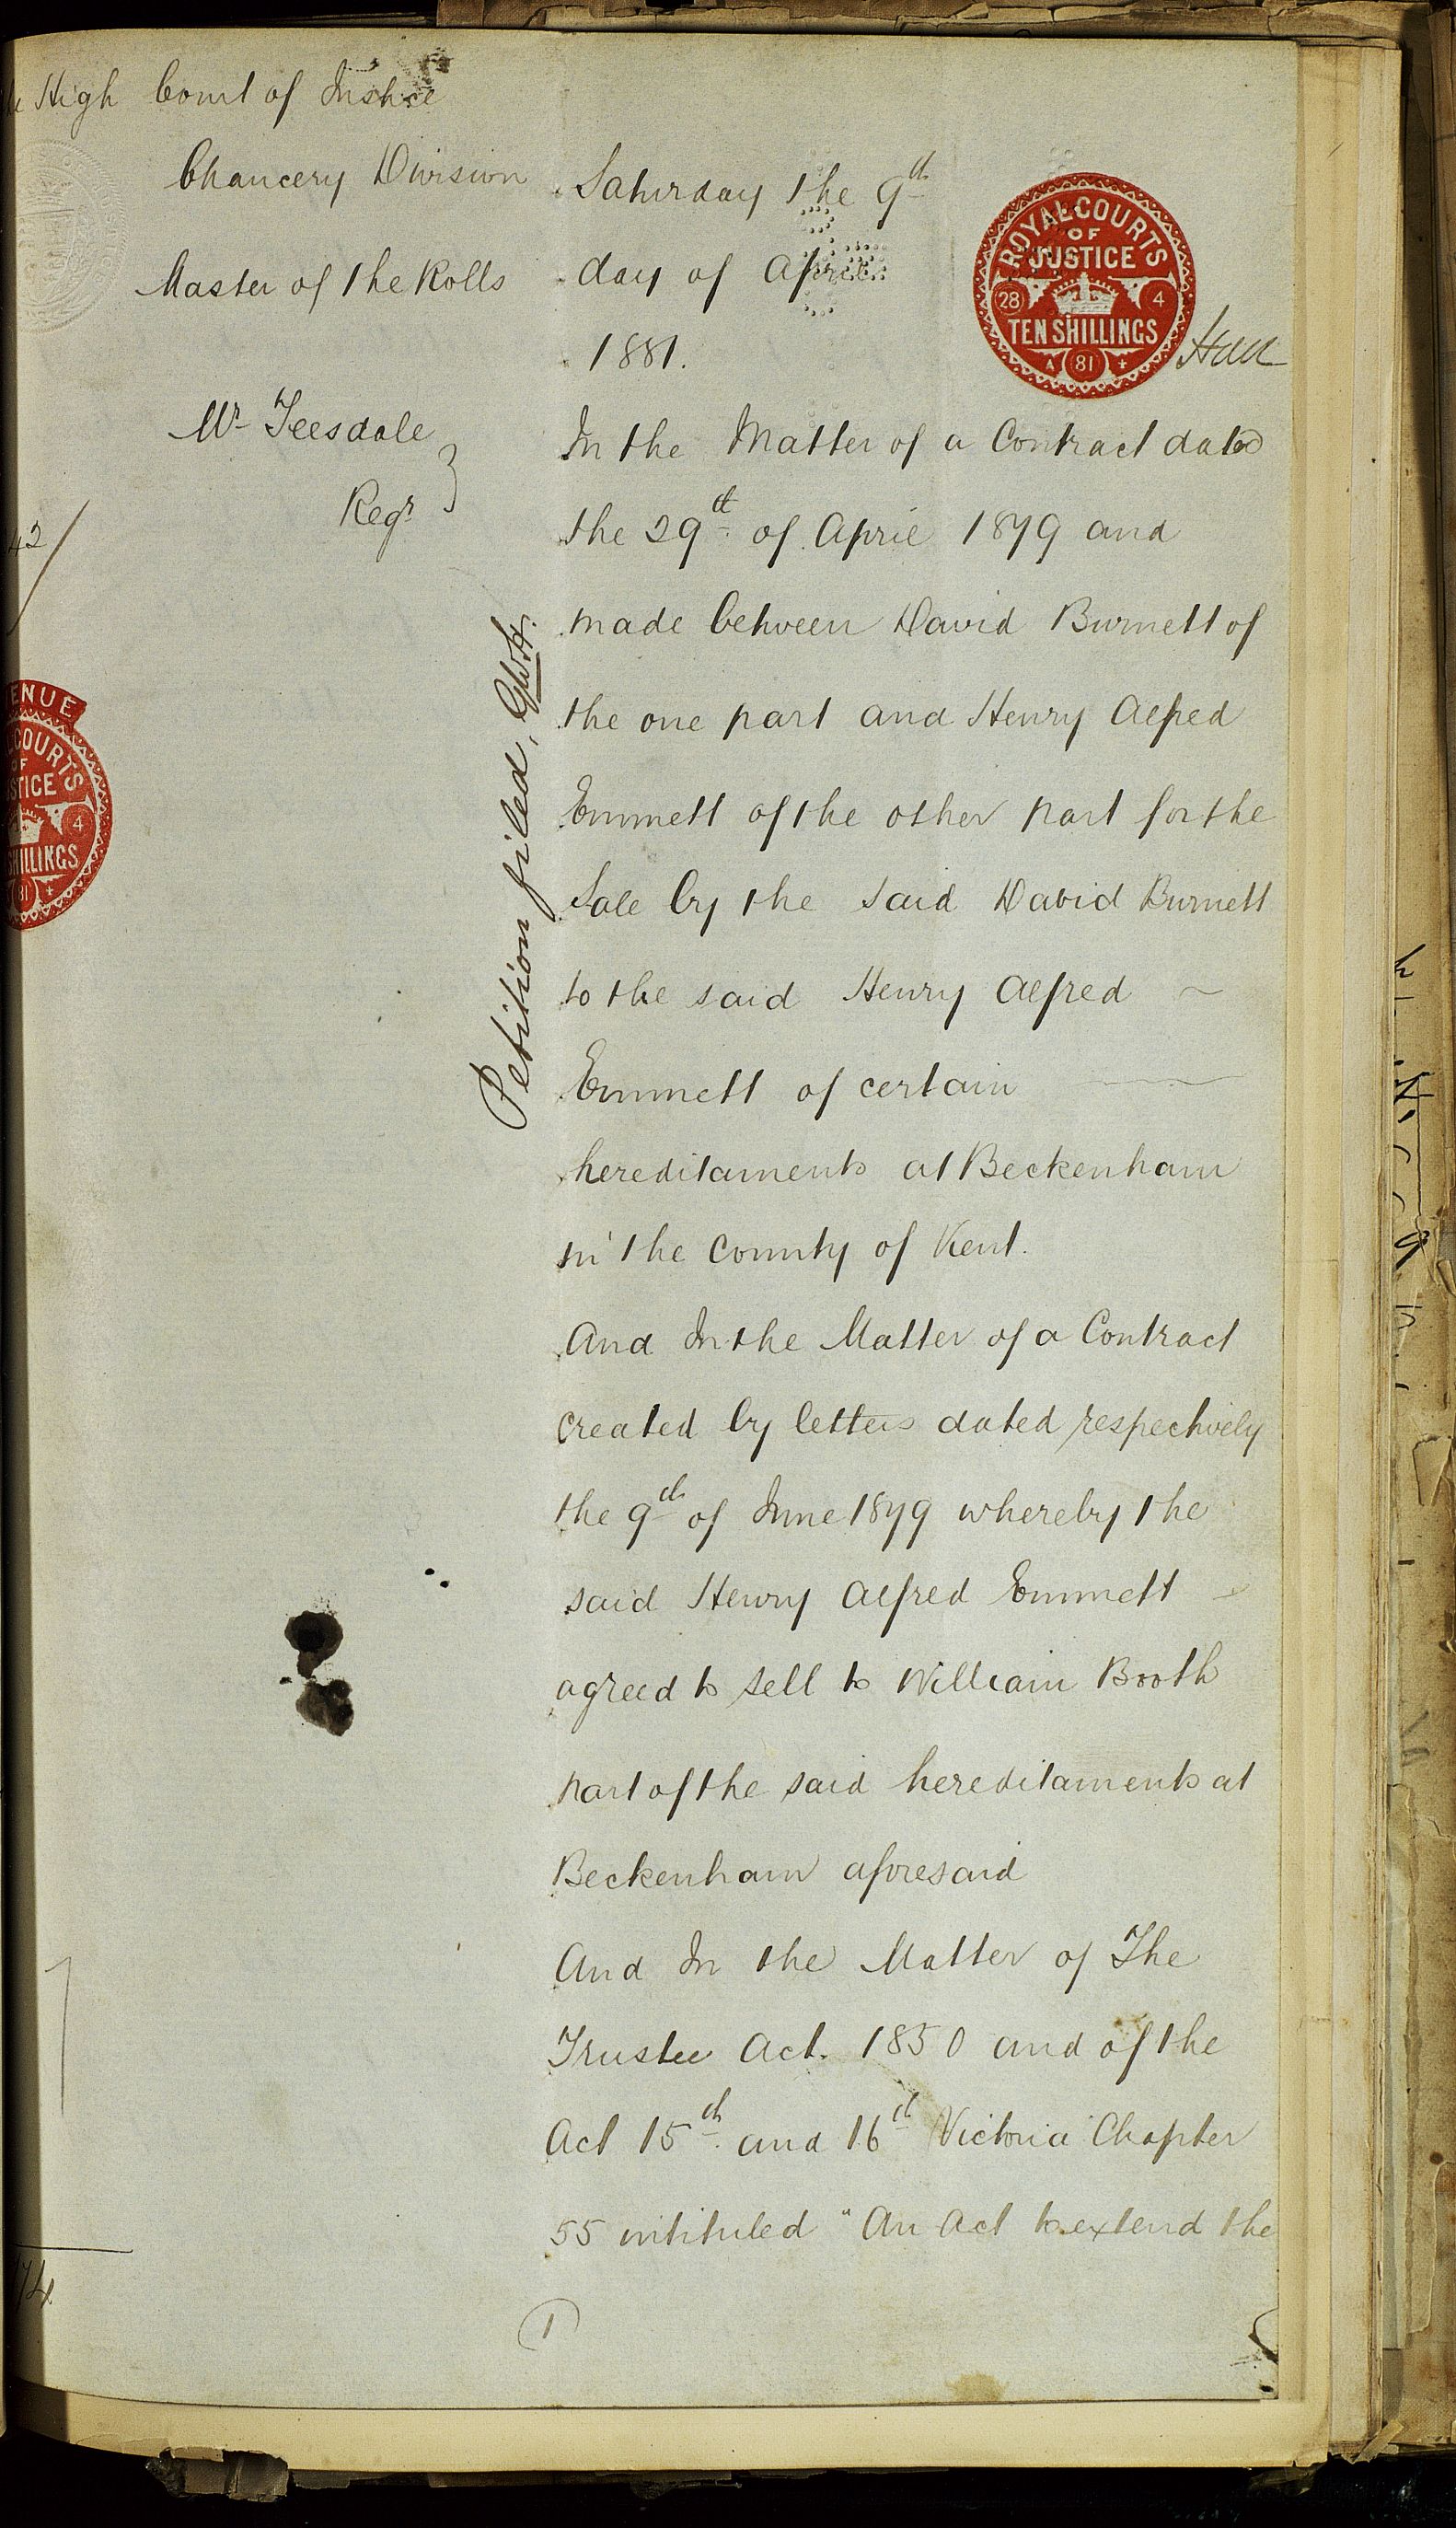 High Court of Justice
Chancery Division
Master of the Rolls
Mr Teesdale
Regr
42
Saturday the 9th
day of April
1881.
ROYAL COURTS
OF
JUSTICE
28
4
TEN SHILLINGS
A 81 +
Petition filed,
In the Matter of a Contract dated
the 29th of April 1879 and
made between David Burnett of
the one part and Henry Alfred
Emmett of the other part for the
Sale by the said David Burnett
to the said Henry Alfred
Emmett of certain
hereditaments at Beckenham
in the County of Kent.
And In the Matter of a Contract
created by letters dated respectively
the 9th of June 1879 whereby the
said Henry Alfred Emmett
agreed to sell to William Booth
part of the said hereditaments at
Beckenham aforesaid
And In the Matter of The
Trustee Act. 1850 and of the
Act 15th and 16th Victoria Chapter
55 intituled "An Act to extend the
1
ENUE
COURTS
OF
STICE
4
SHILLINGS
81 +